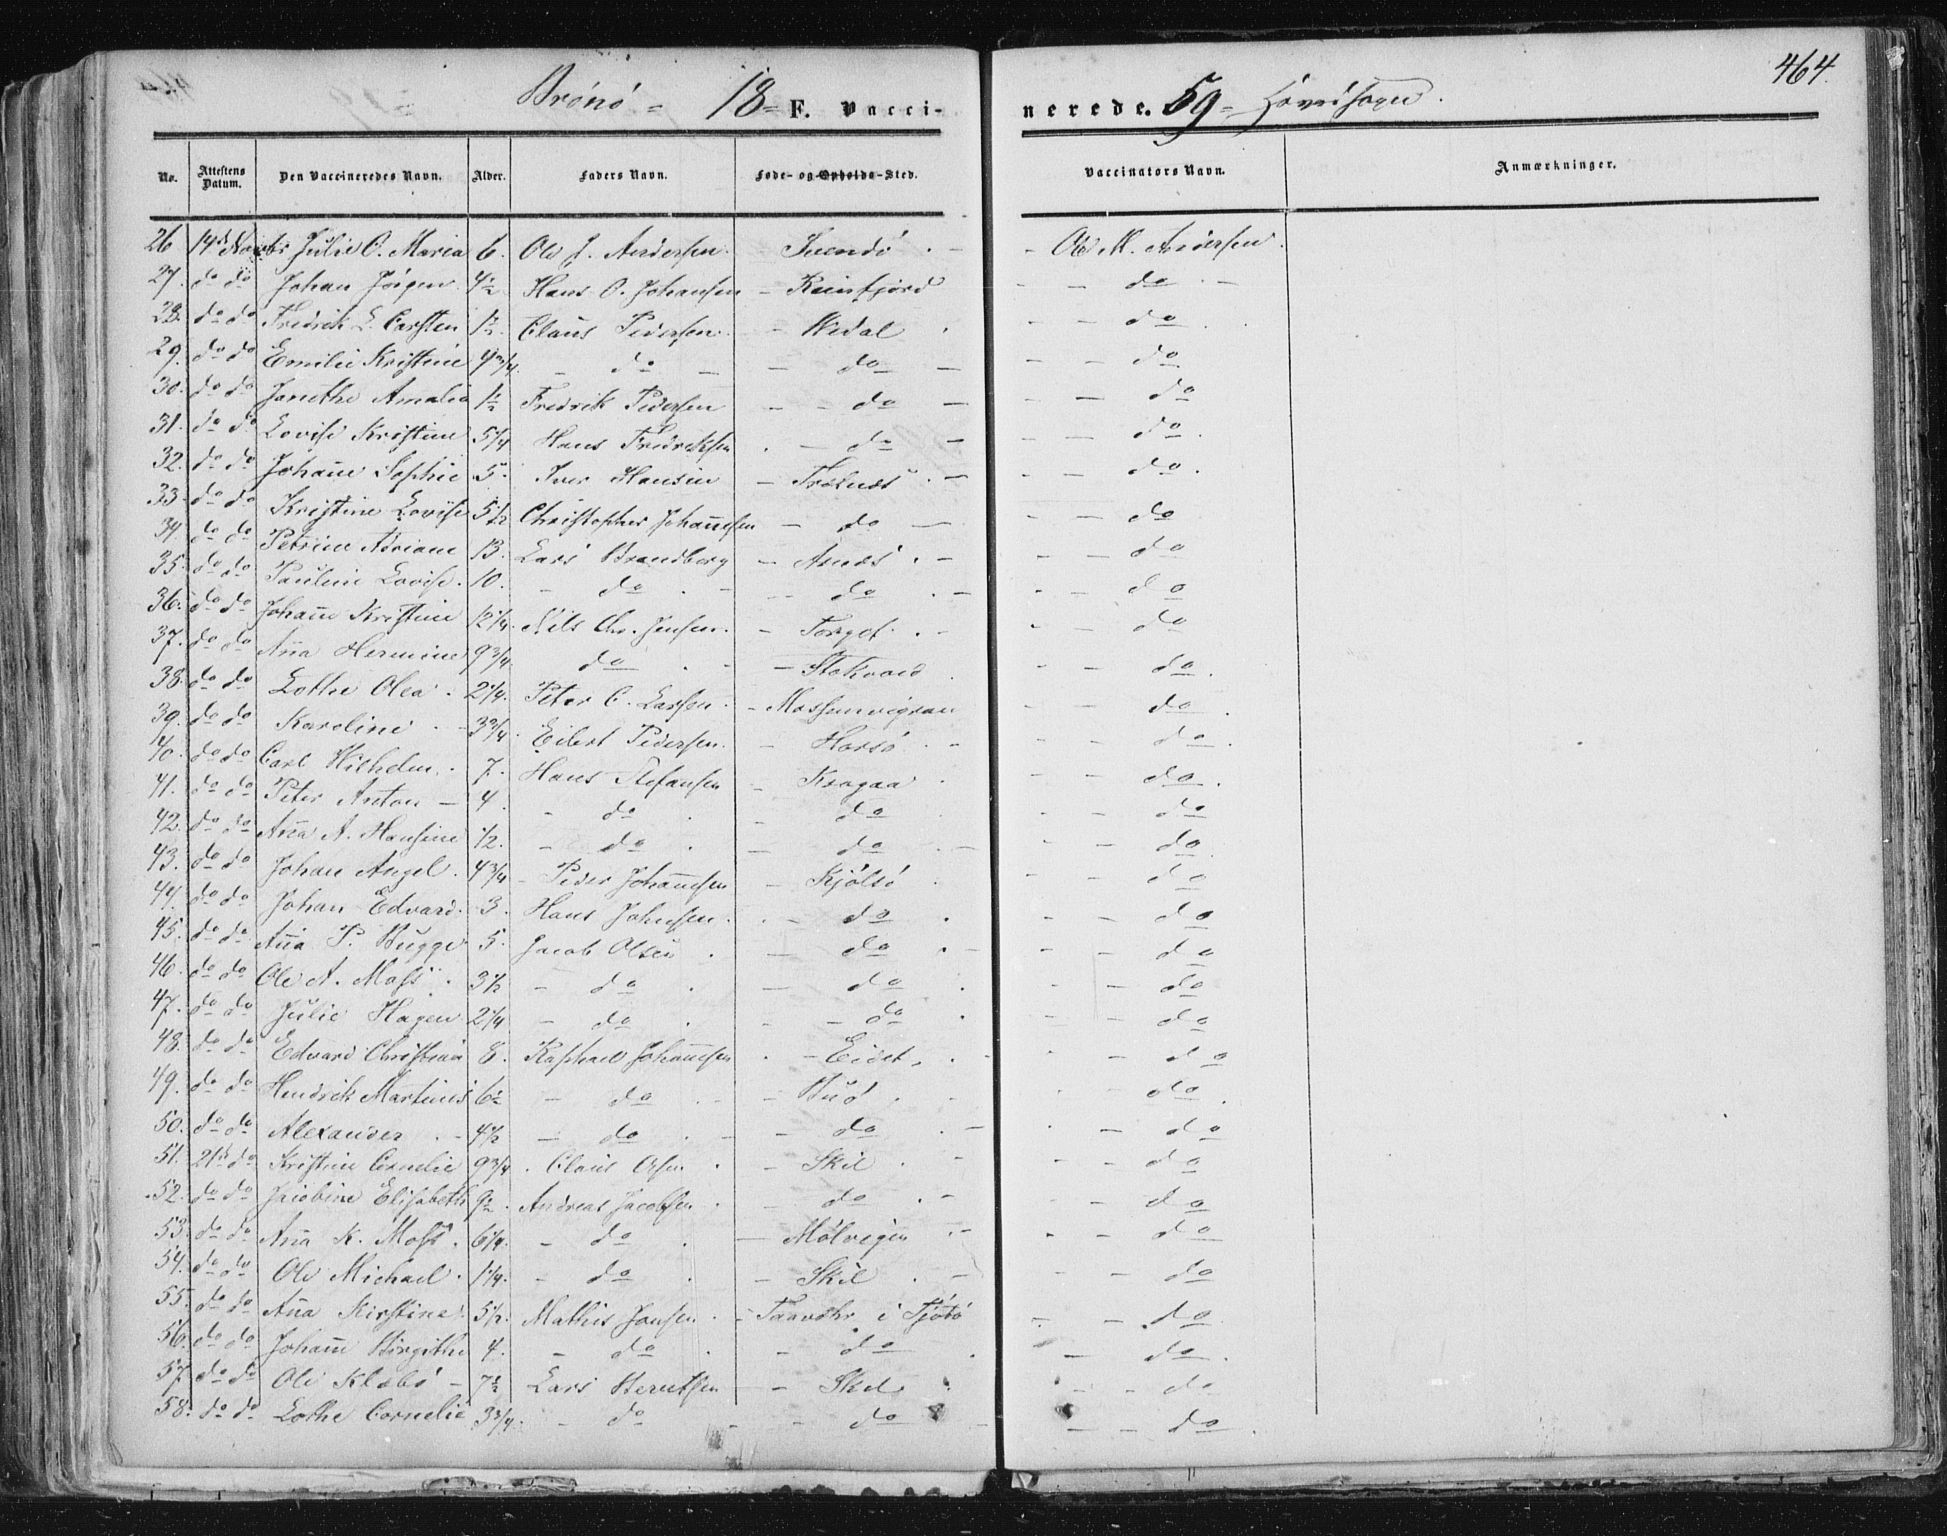 464.
Brönö - 18 - F. Vacci-nerede. 59 - Hovedsogn.
No. Attestens Datum. Den Vaccineredes Navn. Alder. Faders Navn. Føde- og Opholds-Sted. Vaccinators Navn. Anmærkninger.
26 14d Novbr Julie O. Maria 6. Ole J. Andersen - Ole M. Andersen.
27. do do Johan Jörgen 4½ Hans O. Johansen - Reinfjord - - do - -
28. do do Fredrik L. Carsten 1½. Claus Pedersen. - - - do
29. do do Emilie Kristine 4¾. - do - - do - - - do
30. do do Janethe Amalia 1½ Fredrik Pedersen - - do - - - do
31. do do Lovise Kristine 5¼ Hans Fredriksen - do - - - do.
32. do do Johane Sophie 5. Iver Hansen - Trælnes - - - do.
33. do do Kristine Lovise 5½ Christopher Johannesen - do - - - do
34. do do Petrine Adriane 13. Lars Brandberg - - - do
35. do do Pauline Lovise. 10. - do - -- do - - - do
36. do do Johane Kristine 12¼. Nils Chr. Jensen. - Torget - - - do
37. do do Aña Hermine 9¾. do - - - - do.
38 do do Lothe Olea. 2¼. Peter C. Larsen. - - - do.
39. do do Karoline - 3¾. Eilert Pedersen. - Horsö - - - do.
40. do do Carl Wilhelm. 7. Hans Stefansen - Kragaa - - do.
41. do do Peter Anton - 4. - do - do - - do
42. do do Aña A. Hansine ½. - do - do - - - do.
43. do do Johan Angel. 4¾ - Peder Johannesen - Kjölsö - - do
44. do do Johan Edvard. 3. Hans Johnsen. - do - - do
45. do do Aña P. Bugge 5. Jacob Olsen - do - - - do
46. do do Ole A. Moss. 3½ - do - do - - do
47. do do Julie Hagen 2¼ - do - - do - - do
48. do do Edvard 8. Raphael Johannesen - Eidet. - - do
49. do do Hendrik Martinus 6½ - do - - - - do.
50. do do Alexander - 4½ - do - - do - - - do
51. 21d do Kristine Cornelie 9¾. Claus - Skil - - do
52. do do Jacobine Elisabeth 9½. Andreas Jacobsen - do - - - do
53. do do Aña K. Moss. 6¼. - do - Mølvigen - - - do
54. do do Ole Michael. 1¼. - do - Skil - - - do
55. do do Aña Kirstine. 5½. Mathis Jonsen - i Tjötö - - do.
56. do do Johane Birgithe 4. - do - do - do.
57. do do Ole Klæbö - 7½ Lars Berntsen - Skil - - do
58. do do Lothe Cornelie 3¾. - do - - do - - - do